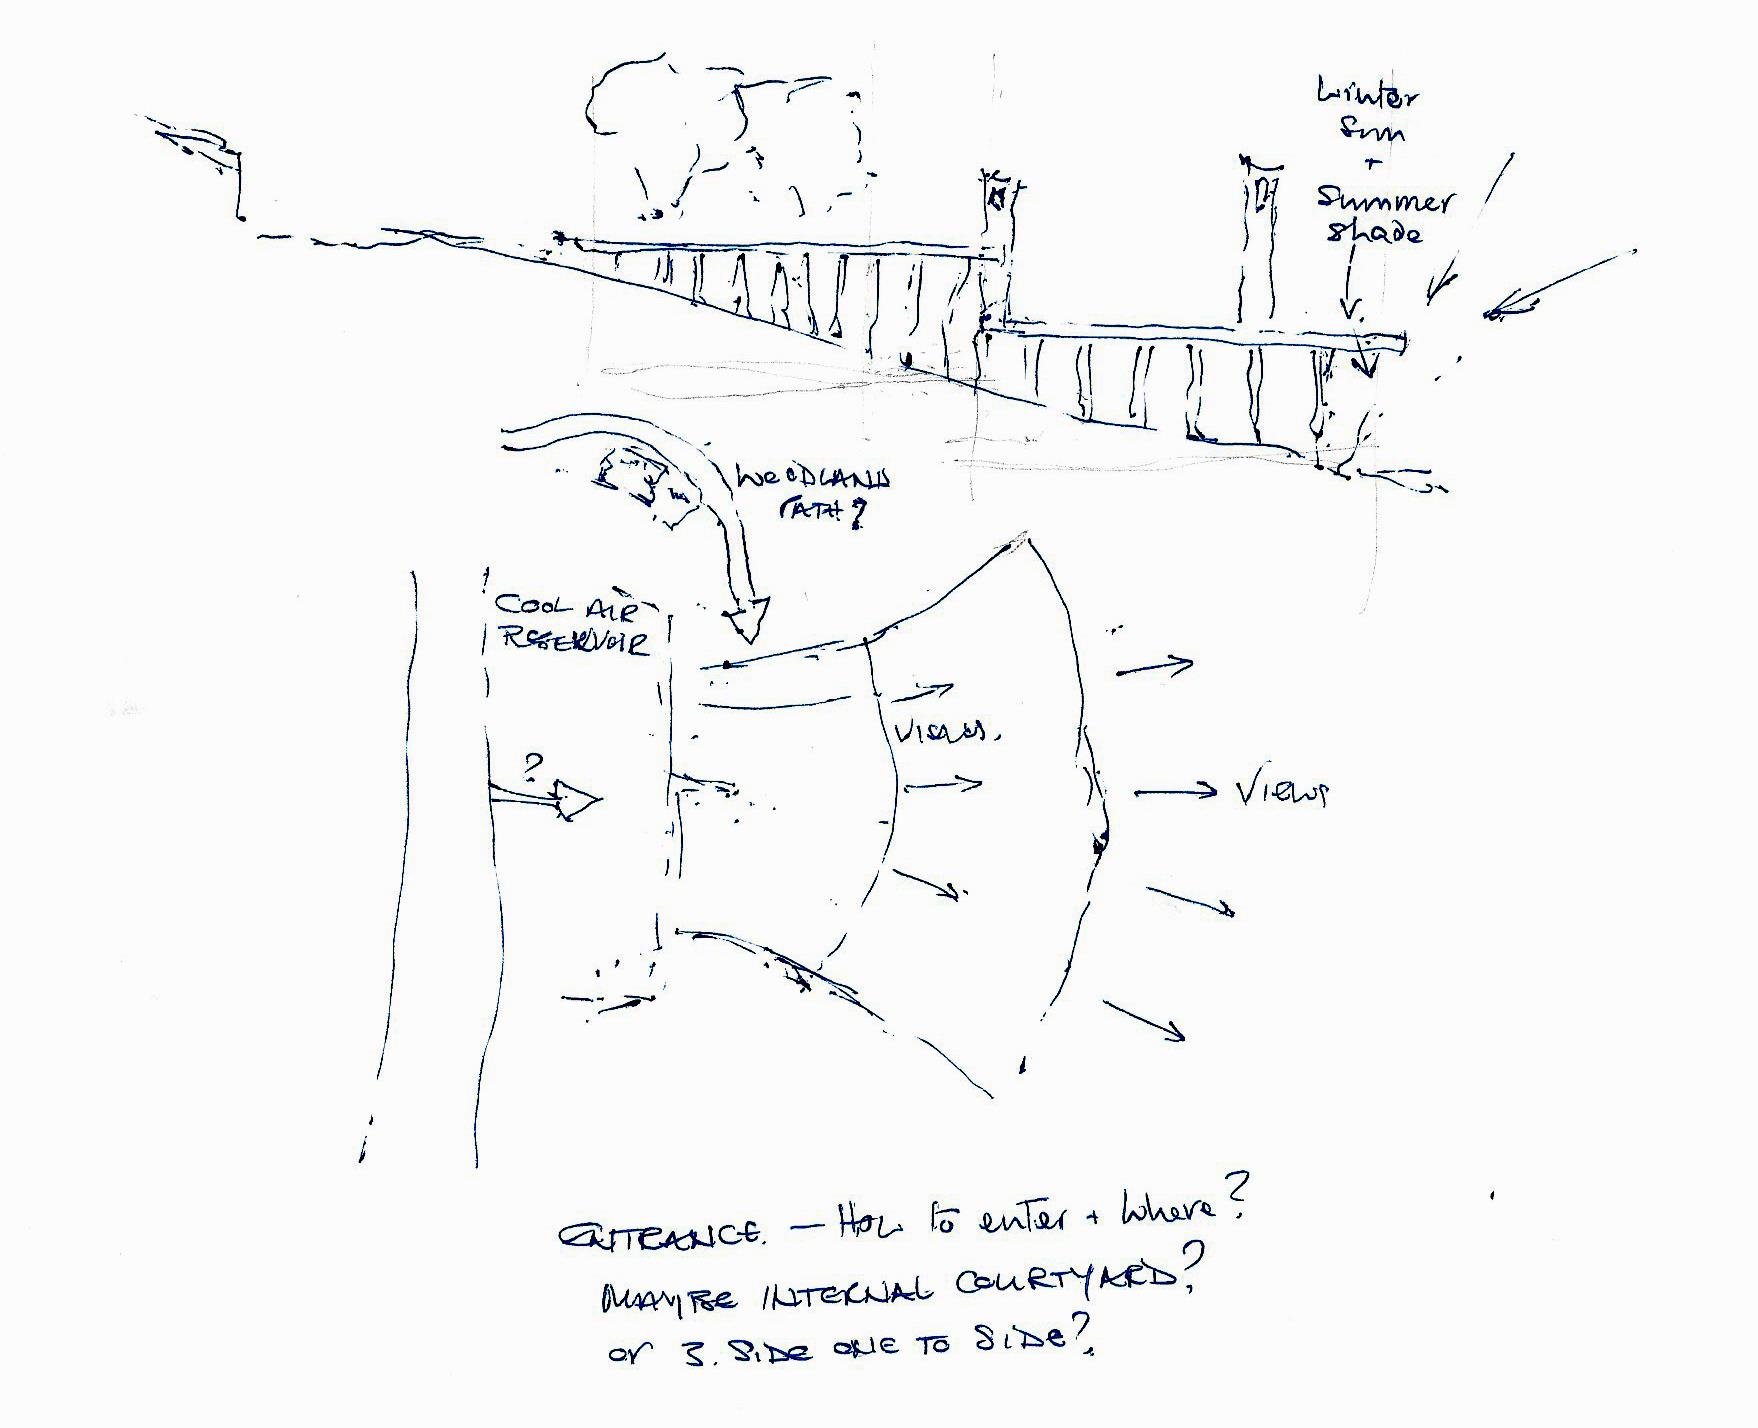 Winter
Sun
+
Summer
shade
WOODLAND
PATH?
COOL AIR
RESERVOIR
VIEWS.
?
VIEWS
ENTRANCE. — How to enter + where?
MAYBE INTERNAL COURTYARD?
or 3. SIDE ONE TO SIDE?